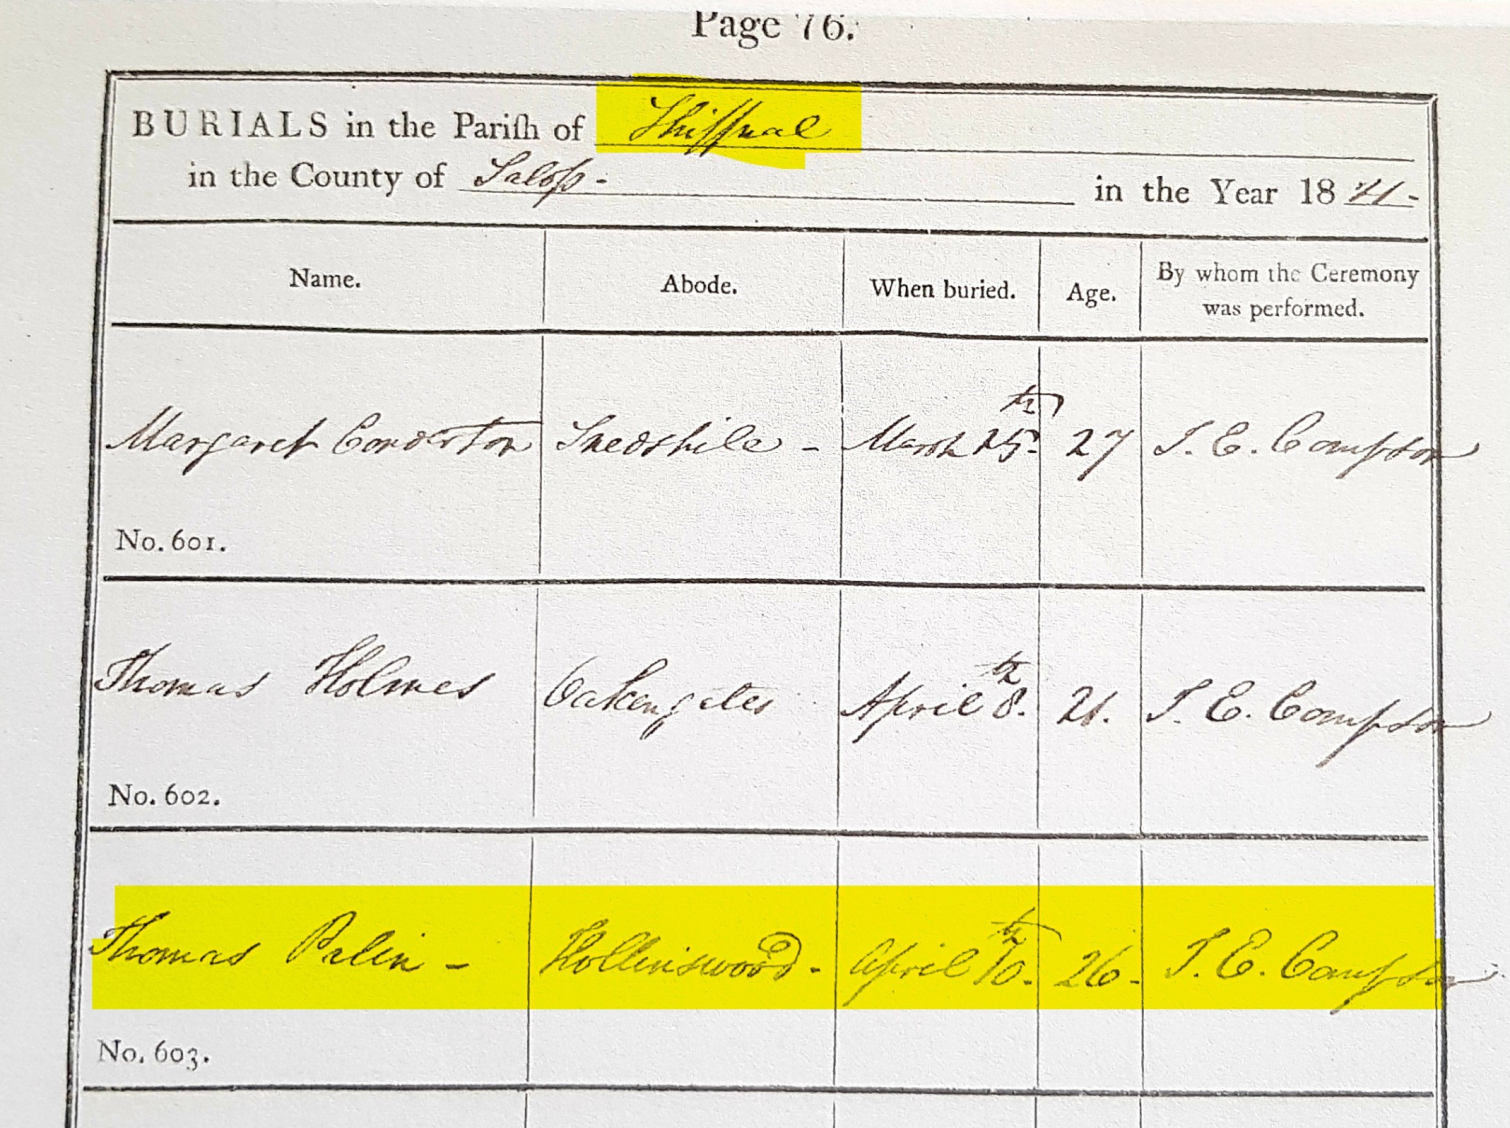 Page 76.
BURIALS in the Pariſh of Shiffnal
in the County of Salop - in the Year 18 21 -
Name. Abode. When buried. Age. By whom the Ceremony was performed.
Margaret Snedshile - March 25th 27 J. E. Compson
No. 601.
Thomas Holmes Oakengates April 8.th 21. J. E. Compson
No. 602.
Thomas Palin - Hollinswood - April 10th. 26 - J. E. Compson
No. 603.